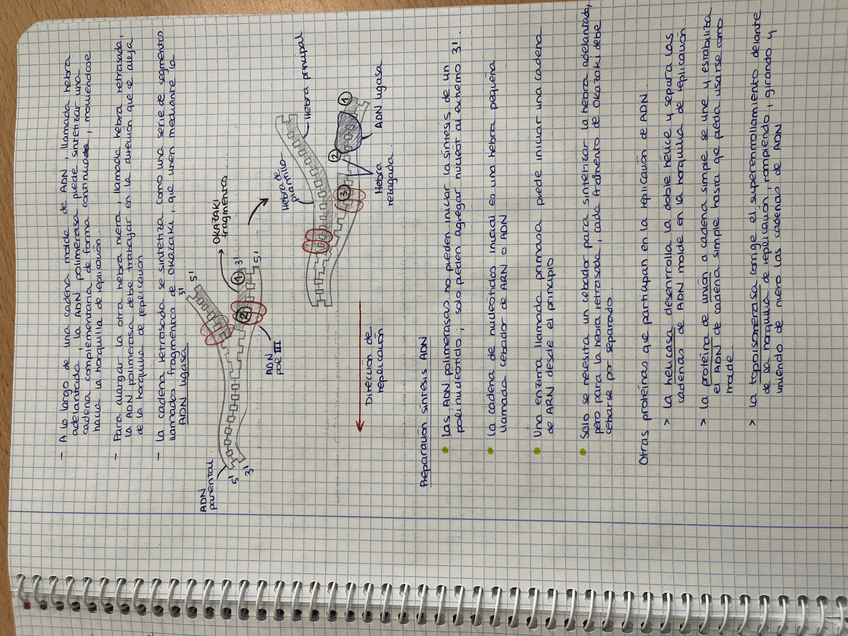 - A lo largo de una cadena molde de ADN, llamada hebra
adelantada, la ADN polimerasa puede sintetizar una
cadena complementaria de forma continuada, moviendose
hacia la horquilla de replicación.
- Para alargar la otra hebra nueva, llamada hebra retrasada,
la ADN polimerasa debe trabajar en la dirección que se aleja
de la horquilla de replicación
- La cadena retrasada se sintetiza como una serie de segmentos
llamados fragmentos de Okazaki, que unen mediante la
ADN ligasa
ADN
parental
5'
3'
3'
5'
OKAZAKI
fragmentos
1
3'
5'
2
ADN
pol III
Hebra de
plantilla
Hebra principal
3
2
1
Hebra
rezagada
ADN ligasa
Dirección de
replicación
Preparación síntesis ADN
• Las ADN polimerasas no pueden iniciar la síntesis de un
polinucleotido; solo pueden agregar nucleot al extremo 3'.
• La cadena de nucleótidos inicial es una hebra pequeña
llamada cebador de ARN o ADN
• Una enzima llamada primasa puede iniciar una cadena
de ARN desde el principio
• Solo se necesita un cebador para sintetizar la hebra adelantada,
pero para la hebra retrasada, cada fragmento de Okazaki debe
cebarse por separado
Otras proteínas que participan en la replicación de ADN
> La helicasa desenrolla la doble hélice y separa las
cadenas de ADN molde en la horquilla de replicación
> La proteína de unión a cadena simple se une y estabiliza
el ADN de cadena simple hasta que pueda usarse como
molde
> La topoisomerasa corrige el superenrollamiento delante
de la horquilla de replicación, rompiendo, girando y
uniendo de nuevo las cadenas de ADN